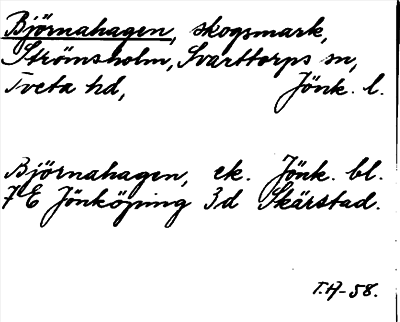 Björnahagen, skogsmark,
Strömsholm, Svarttorps sn,
Tveta hd, Jönk. l.
Björnahagen, ek. Jönk. bl.
7E Jönköping 3d Skärstad.
T.H-58.